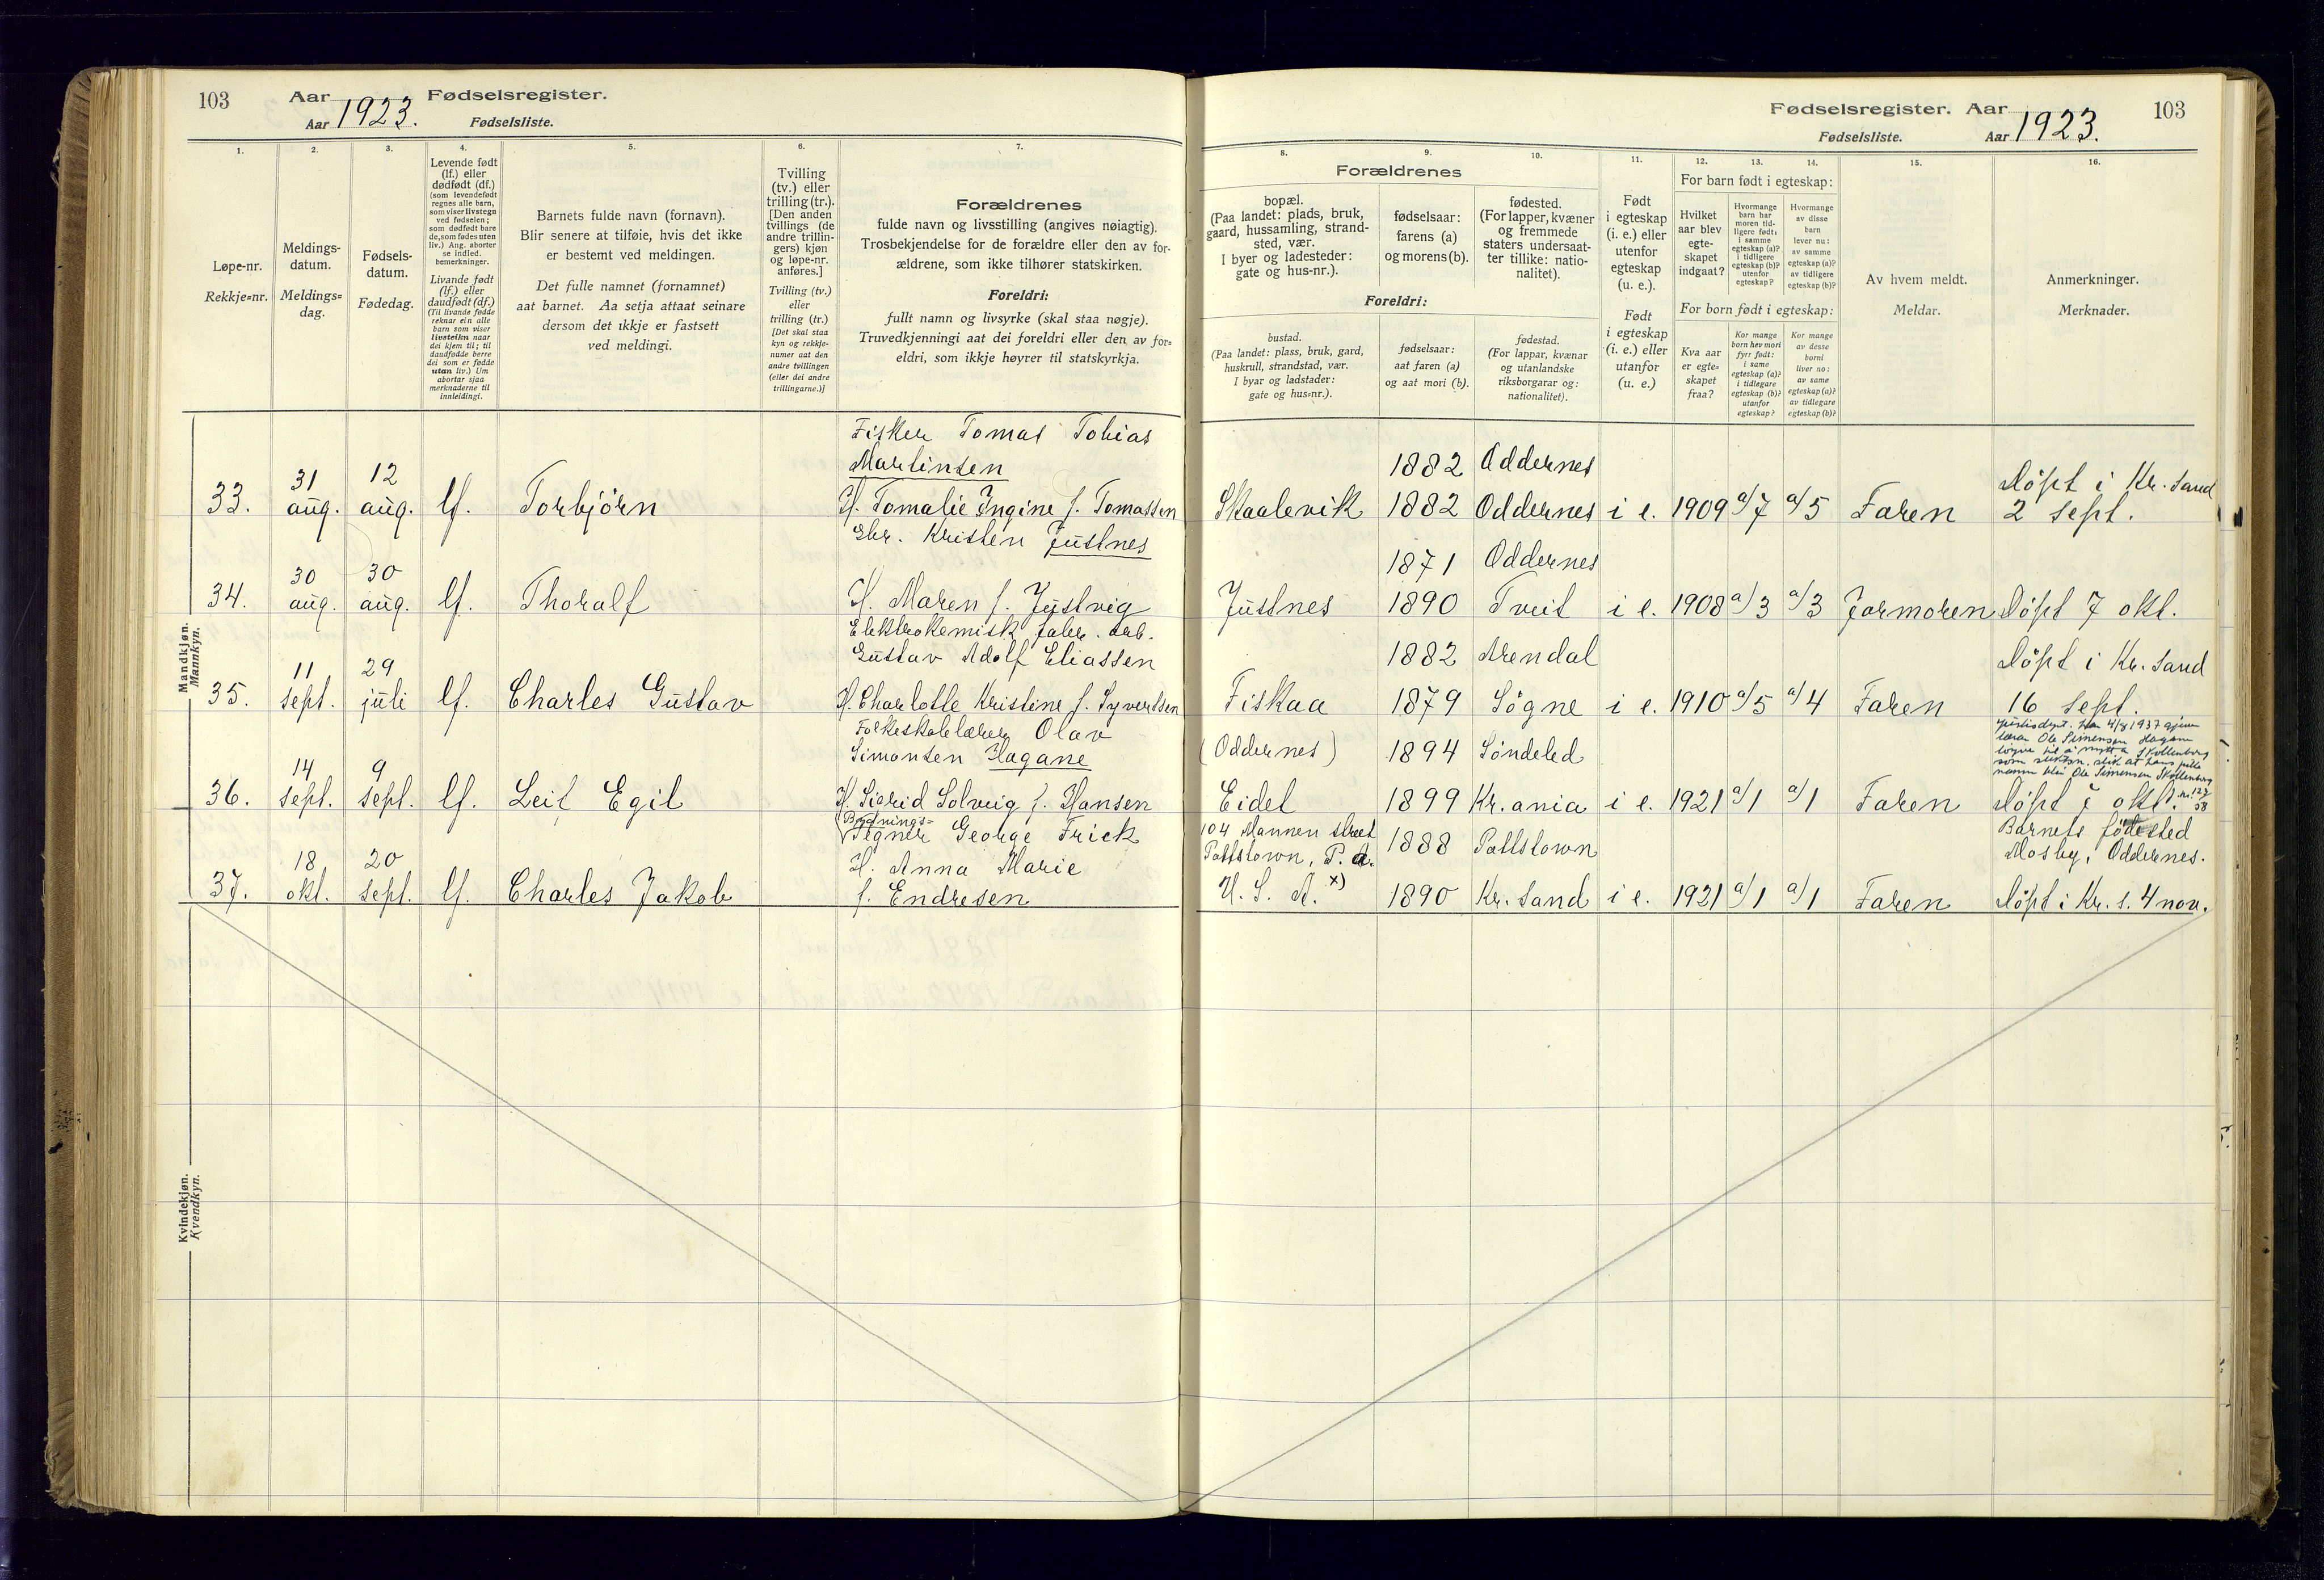 103
Aar 1923.
Aar
Fødselsregister.
Fødselsliste.
1.
Løpe-nr.
Rekkje=nr.
2.
Meldings-
datum.
Meldings=
dag.
3.
Fødsels-
datum.
Fødedag.
4.
Levende født
(lf.) eller
dødfødt (df.)
(som levendefødt
regnes alle barn,
som viser livstegn
ved fødselen;
som dødfødt bare
de, som fødes uten
liv.) Ang. aborter
se indled.
bemerkninger.
Livande født
(lf.) eller
daudfødt (df.)
(Til livande fødde
reknar ein alle
barn som viser
livsteikn naar
dei kjem til; til
daudfødde berre
dei som er fødde
utan liv.) Um
abortar sjaa
merknaderne til
innleidingi.
5.
Barnets fulde navn (fornavn).
Blir senere at tilføie, hvis det ikke
er bestemt ved meldingen.
Det fulle namnet (fornamnet)
aat barnet. Aa setja attaat seinare
dersom det ikkje er fastsett
ved meldingi.
6.
Tvilling
(tv.) eller
trilling (tr.).
[Den anden
tvillings (de
andre trillin-
gers) kjøn
og løpe-nr.
anføres.]
Tvilling (tv.)
eller
trilling (tr.)
[Det skal staa
kyn og rekkje-
numer aat den
andre tvillingen
(eller dei andre
trillingarne.)]
7.
Forældrenes
fulde navn og livsstilling (angives nøiagtig).
Trosbekjendelse for de forældre eller den av for-
ældrene, som ikke tilhører statskirken.
Foreldri:
fullt namn og livsyrke (skal staa nøgje).
Truvedkjenningi aat dei foreldri eller den av for=
eldri, som ikkje høyrer til statskyrkja.
Mandkjøn.
Mannkyn.
33.
31
aug.
12
aug.
lf.
Torbjörn
Fisker Tomas Tobias
Martinsen
H. Tomalie Ingine f. Tomassen
34.
30
aug.
30
aug.
lf.
Thoralf
Gbr. Kristen Justnes
H. Maren f. Justvig
35.
11
sept.
29
juli
lf.
Charles Gustav
Elektrokemisk fabr. arb.
Gustav Adolf Eliassen
H. Charlotte Kristine f. Syvertsen
36.
14
sept.
9
sept.
lf.
Leif Egil
Folkeskolelærer Olav
Simonsen Hagane
H. Sigrid Solveig f. Hansen
37.
18
okt.
20
sept.
lf.
Charles Jakob
Bygnings=
Tegner George Frick
H. Anna Marie
f. Endresen
Kvindekjøn.
Kvendkyn.
Fødselsregister.
Fødselsliste.
Aar 1923.
Aar
103
8.
Forældrenes
bopæl.
(Paa landet: plads, bruk,
gaard, hussamling, strand-
sted, vær.
I byer og ladesteder:
gate og hus-nr.).
Foreldri:
bustad.
(Paa landet: plass, bruk, gard,
huskrull, strandstad, vær.
I byar og ladstader:
gate og hus=nr.).
9.
fødselsaar:
farens (a)
og morens (b).
fødselsaar:
aat faren (a)
og aat mori (b).
10.
fødested.
(For lapper, kvæner
og fremmede
staters undersaat-
ter tillike: natio-
nalitet).
fødestad.
(For lappar, kvænar
og utanlandske
riksborgarar og:
nationalitet).
11.
Født
i egteskap
(i. e.) eller
utenfor
egteskap
(u. e.).
Født
i egteskap
(i. e.) eller
utanfor
(u. e.)
For barn født i egteskap:
12.
Hvilket
aar blev
egte-
skapet
indgaat?
13.
Hvormange
barn har
moren tid-
ligere født:
i samme
egteskap (a)?
i tidligere
egteskap (b)?
utenfor
egteskap?
14.
Hvormange
av disse
barn
lever nu:
av samme
egteskap (a)?
av tidligere
egteskap (b)?
For born født i egteskap:
Kva aar
er egte=
skapet
fraa?
Kor mange
born hev mori
fyrr født:
i same
egteskap (a)?
i tidlegare
egteskap (b)?
utanfor
egteskap?
Kor mange
av desse
borni
liver no:
av same
egteskap (a)?
av tidlegare
egteskap (b)?
15.
Av hvem meldt.
Meldar.
16.
Anmerkninger.
Merknader.
Skaalevik
1882
1882
Oddernes
Oddernes
i e.
1909
a/7
a/5
Faren
Döpt i Kr. sand
2 sept.
Justnes
1871
1890
Oddernes
Tveit
i e.
1908
a/3
a/3
Jormoren
Döpt 7 okt.
Fiskaa
1882
1879
Arendal
Sögne
i e.
1910
a/5
a/4
Faren
Döpt i Kr. sand
16 sept.
(Oddernes)
Eidet
1894
1899
Söndeled
Kr.ania
i e.
1921
a/1
a/1
Faren
Justisdept. har 4/8 1937 gjeve
lærar Ole Simensen Hagane
löyve til å nytta Skollenborg
som slektsn. slik at hans fulle
namn blir Ole Simensen Skollenborg
Döpt 7 okt.
104 Mannen street
Pottstown, P. a.
U. S. A. x)
1888
1890
Pottstown
Kr. sand
i e.
1921
a/1
a/1
Faren
Barnets födested
Mosby, Oddernes.
Döpt i Kr. s. 4 nov.